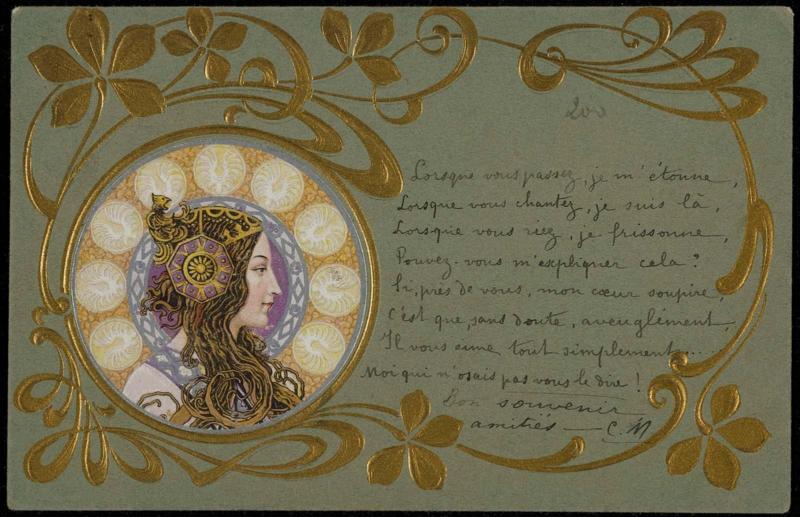 200
Lorsque vous passez, je m'étonne,
Lorsque vous chantez, je suis là,
Lorsque vous riez, je frissonne,
Pouvez-vous m'expliquer cela ?
Si, près de vous, mon cœur soupire,
C'est que, sans doute, aveuglément...
Il vous aime tout simplement....
Moi qui n'osais pas vous le dire !
Bon souvenir
amitiés — C. M